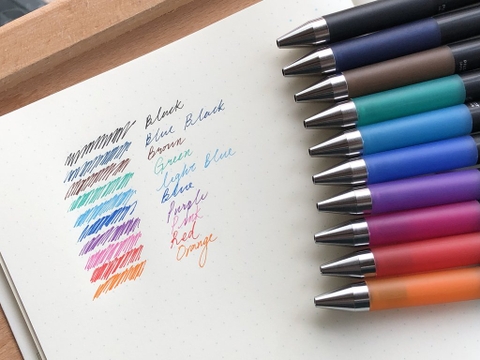 Black
Blue Black
Brown
Green
Light Blue
Blue
Purple
Pink
Red
Orange